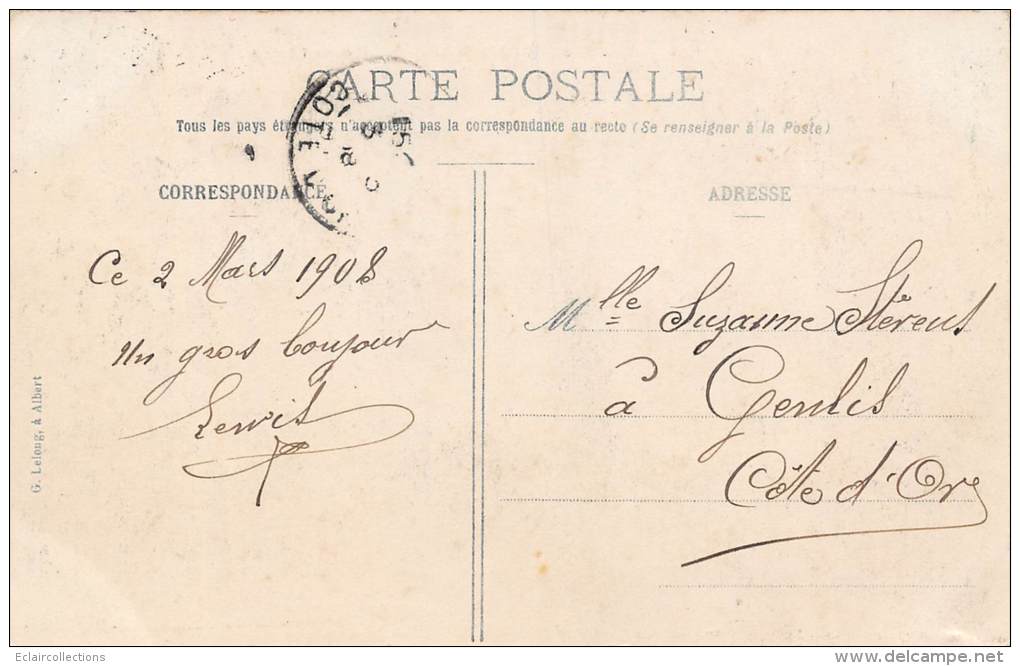 CARTE POSTALE
Tous les pays étrangers n'acceptent pas la correspondance au recto (Se renseigner à la Poste)
CORRESPONDANCE
ADRESSE
COTE D'OR
Ce 2 Mars 1908
Un gros bonjour
Mlle Suzanne
à Genlis
Côte d'Or
G. Lelong, à Albert
Eclaircollections
www.delcampe.net